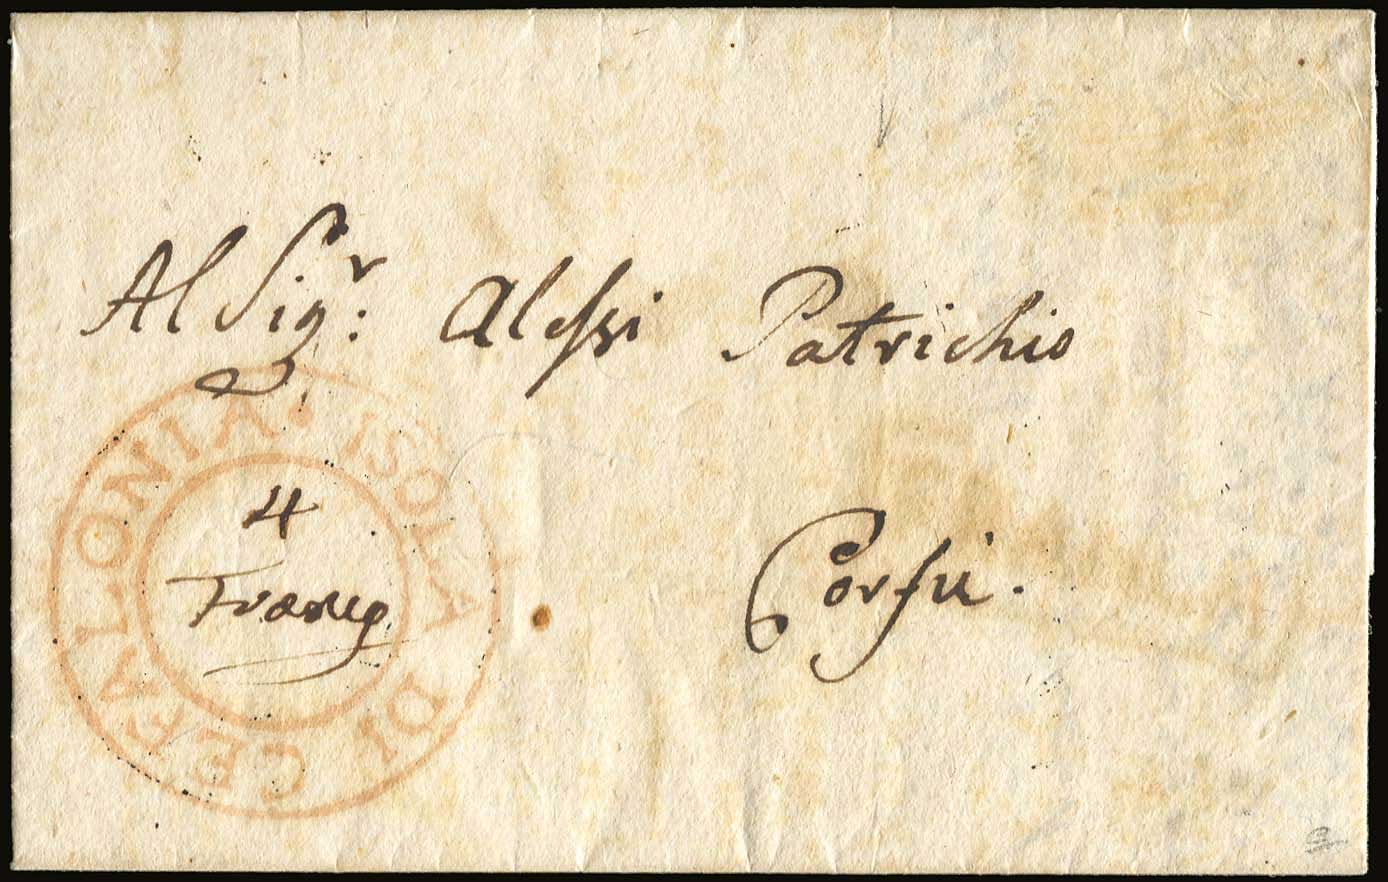 Al Sig.r: Alessi Patrichio
Corfù.
ISOLA DI CEFALONIA.
4
Franco